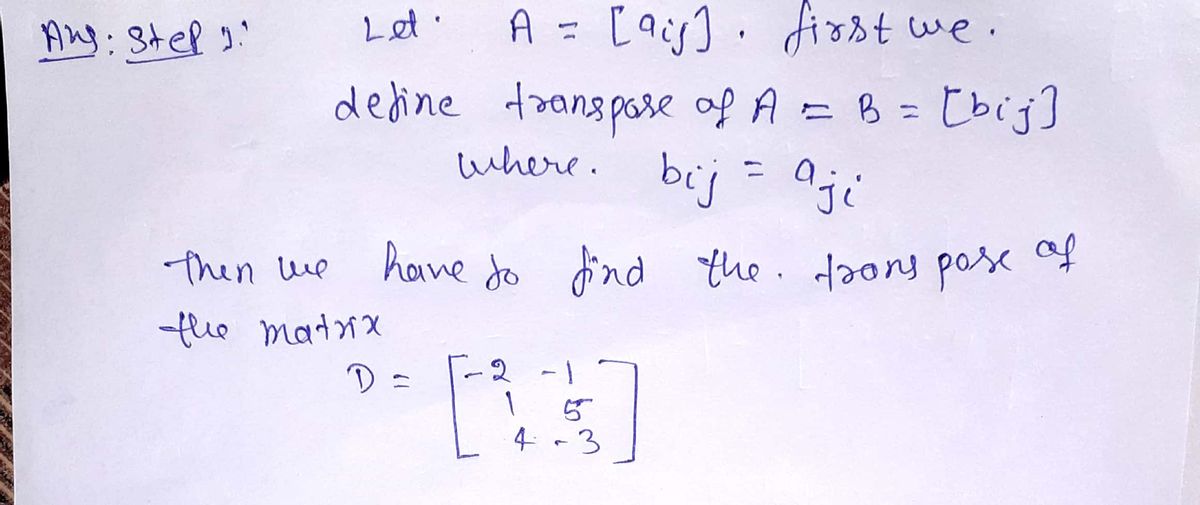 Ans: Step 1:' Let. A = [aij]. first we.
define transpose of A = B = [bij]
where. bij = aji
Then we have to find the. transpose of
the matrix
D = [-2 -1
1 5
4 -3]